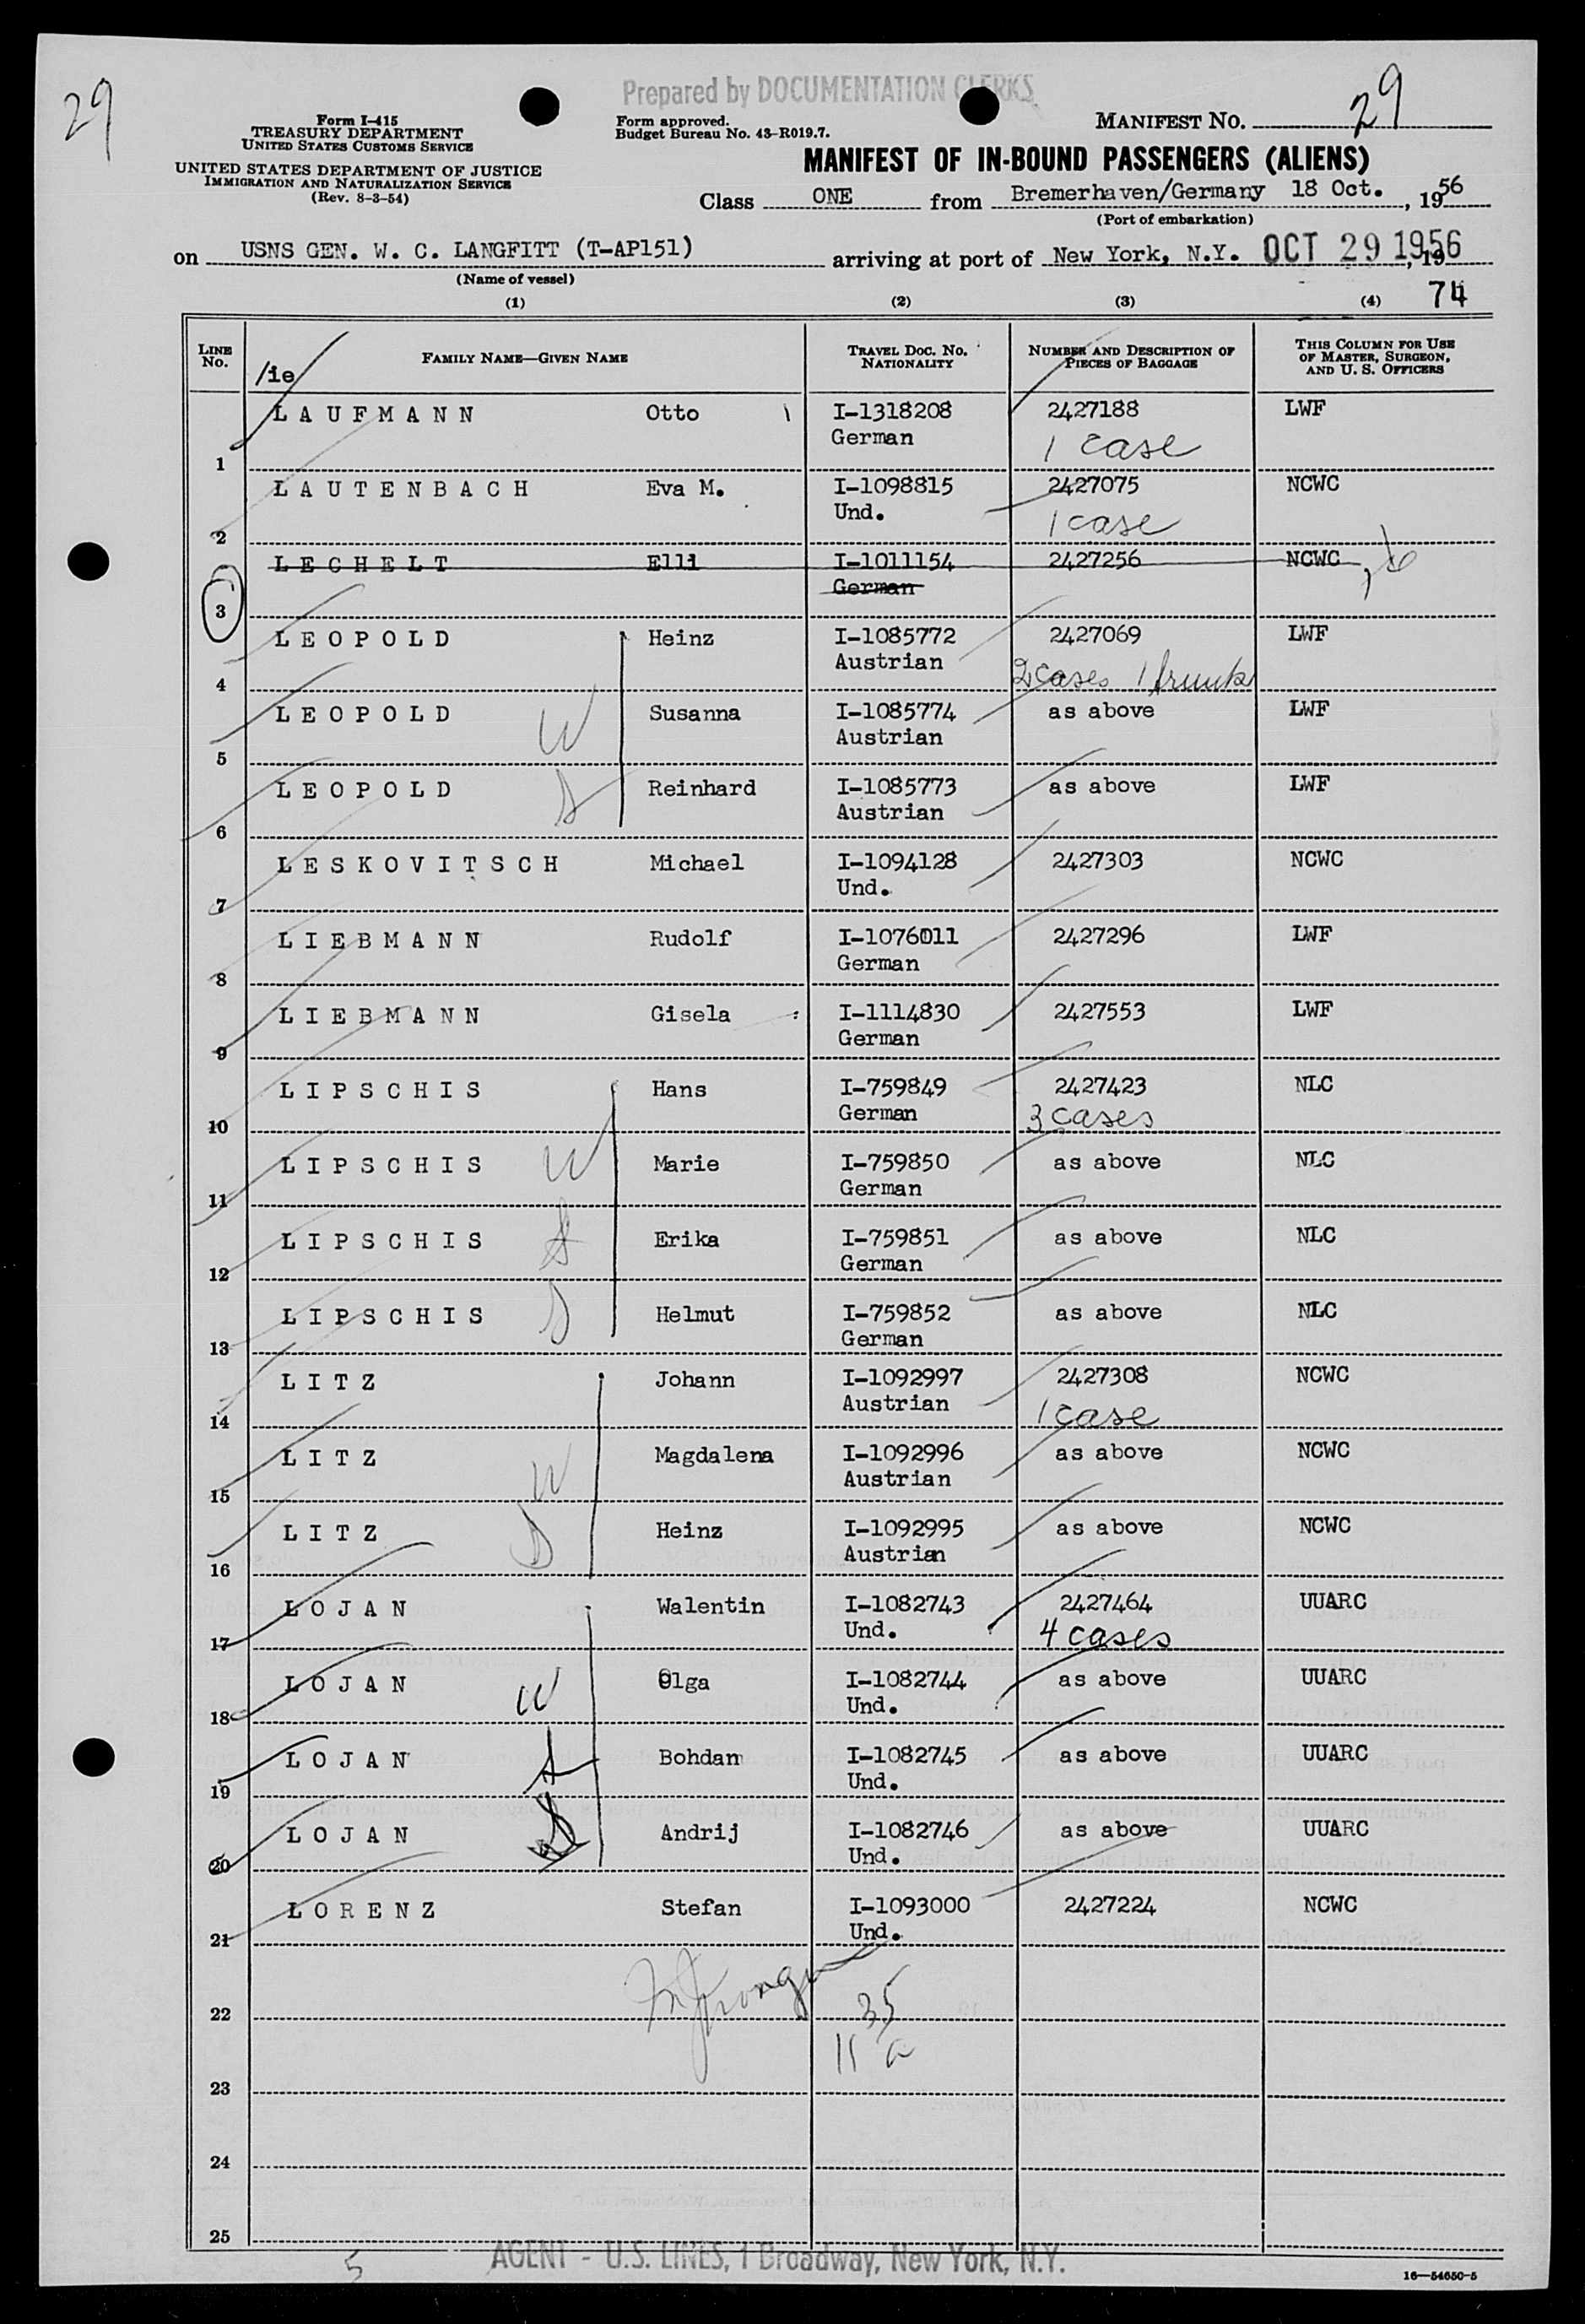 29
Prepared by DOCUMENTATION CLERKS
Form I-415
TREASURY DEPARTMENT
UNITED STATES CUSTOMS SERVICE
UNITED STATES DEPARTMENT OF JUSTICE
IMMIGRATION AND NATURALIZATION SERVICE
(Rev. 8-3-54)
Form approved.
Budget Bureau No. 43-R019.7.
MANIFEST NO. 29
MANIFEST OF IN-BOUND PASSENGERS (ALIENS)
Class ONE from Bremerhaven/Germany 18 Oct., 1956
(Port of embarkation)
on USNS GEN. W. C. LANGFITT (T-AP151) arriving at port of New York, N.Y. OCT 29 1956, 19
(Name of vessel)
(1) (2) (3) (4) 74
LINE No. FAMILY NAME—GIVEN NAME TRAVEL DOC. NO. NATIONALITY NUMBER AND DESCRIPTION OF PIECES OF BAGGAGE THIS COLUMN FOR USE OF MASTER, SURGEON, AND U. S. OFFICERS
/ie
LAUFMANN Otto I-1318208 2427188 LWF
German 1 case
1
LAUTENBACH Eva M. I-1098815 2427075 NCWC
Und. 1 case
2
LECHELT Elli I-1011154 2427256 NCWC
German
3
LEOPOLD Heinz I-1085772 2427069 LWF
Austrian 2 cases 1 trunk
4
LEOPOLD W Susanna I-1085774 as above LWF
Austrian
5
LEOPOLD S Reinhard I-1085773 as above LWF
Austrian
6
LESKOVITSCH Michael I-1094128 2427303 NCWC
Und.
7
LIEBMANN Rudolf I-1076011 2427296 LWF
German
8
LIEBMANN Gisela I-1114830 2427553 LWF
German
9
LIPSCHIS Hans I-759849 2427423 NLC
German 3 cases
10
LIPSCHIS W Marie I-759850 as above NLC
German
11
LIPSCHIS Erika I-759851 as above NLC
German
12
LIPSCHIS S Helmut I-759852 as above NLC
German
13
LITZ Johann I-1092997 2427308 NCWC
Austrian 1 case
14
LITZ W Magdalena I-1092996 as above NCWC
Austrian
15
LITZ S Heinz I-1092995 as above NCWC
Austrian
16
LOJAN Walentin I-1082743 2427464 UUARC
Und. 4 cases
17
LOJAN W Olga I-1082744 as above UUARC
Und.
18
LOJAN S Bohdan I-1082745 as above UUARC
Und.
19
LOJAN S Andrij I-1082746 as above UUARC
Und.
20
LORENZ Stefan I-1093000 2427224 NCWC
Und.
21
35
22
11 a
23
24
25
5
AGENT - U.S. LINES, 1 Broadway, New York, N.Y.
16—54650-5